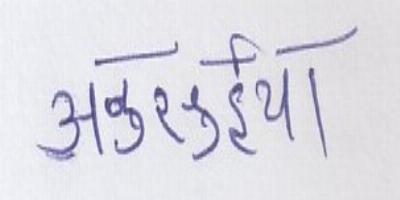 अकुरकुईया